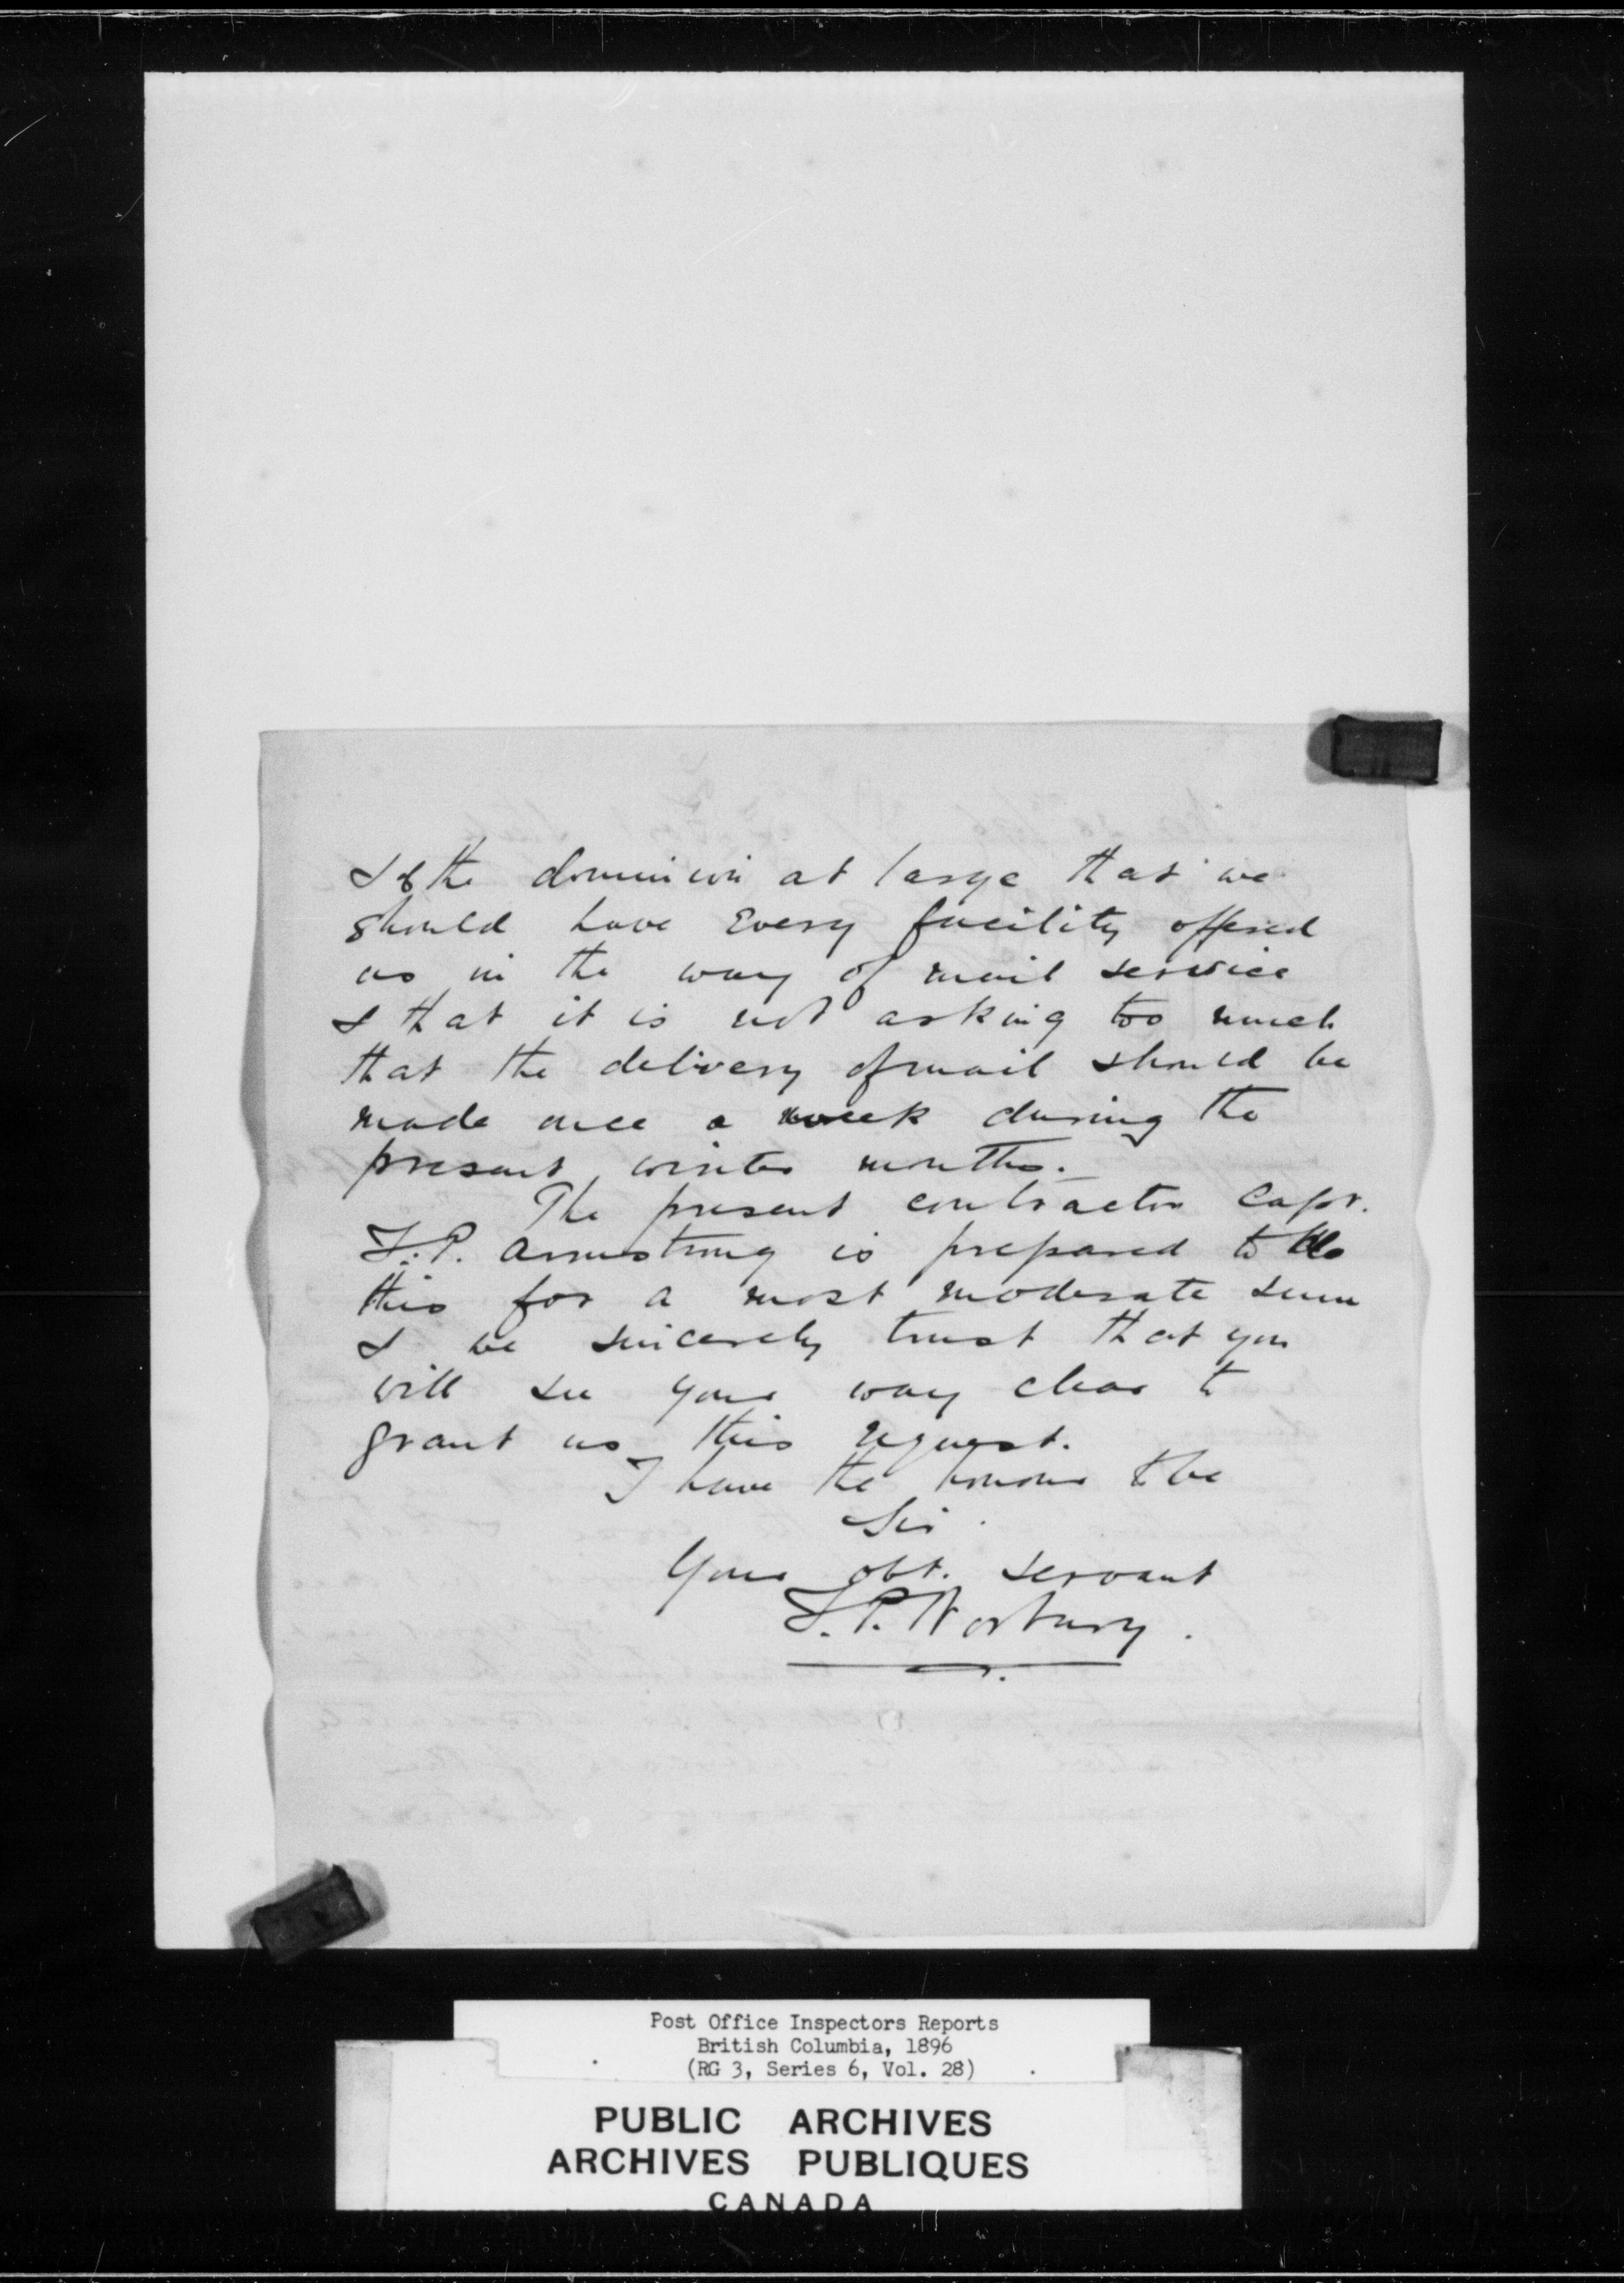 & of the dominion at large that we
should have Every facility offered
us in the way of mail service
& that it is not asking too much
that the delivery of mail should be
made once a week during the
present winter months.
The present contractor Capt.
F.P. Armstrong is prepared to do
this for a most moderate sum
& we sincerely trust that you
will see your way clear to
grant us this request.
I have the honour to be
Sir.
Your obt. servant
F.P. Norbury.
Post Office Inspectors Reports
British Columbia, 1896
(RG 3, Series 6, Vol. 28)
PUBLIC ARCHIVES
ARCHIVES PUBLIQUES
CANADA